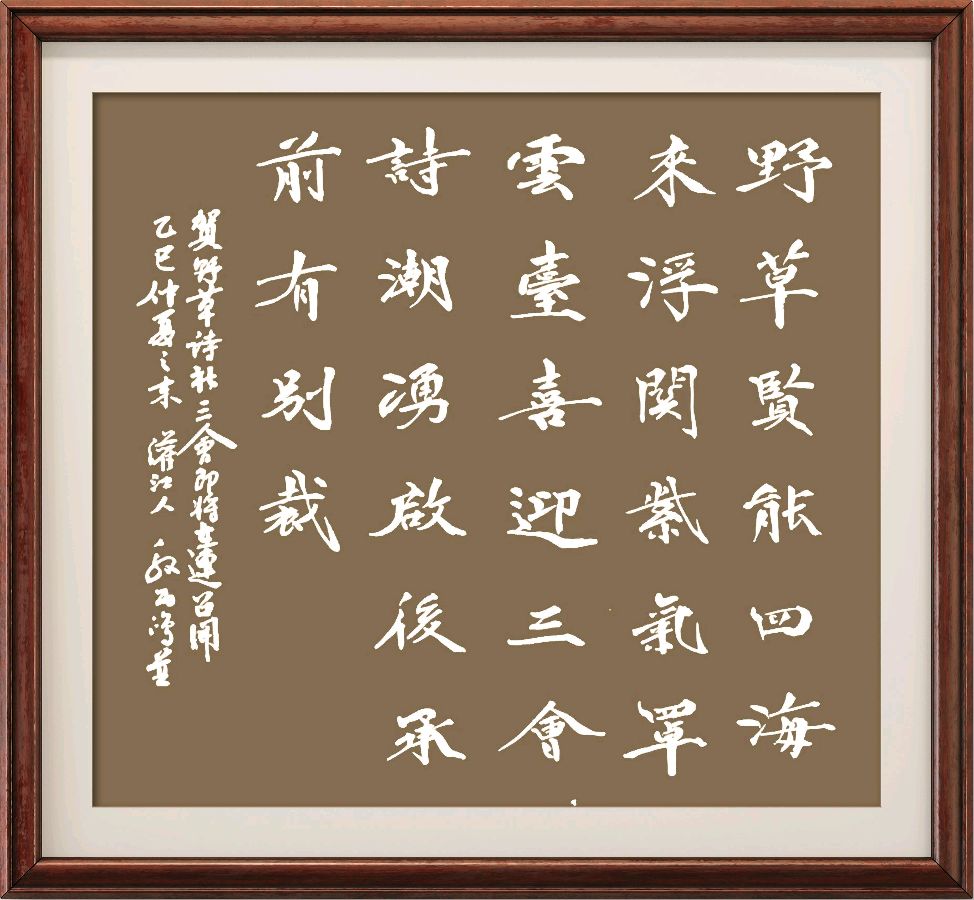 野草賢能四海
來浮関紫氣罩
雲臺喜迎三會
詩潮湧啟後承
前有別裁
賀野草诗社三會即将在連召開
乙巳仲夏之末 灌江人